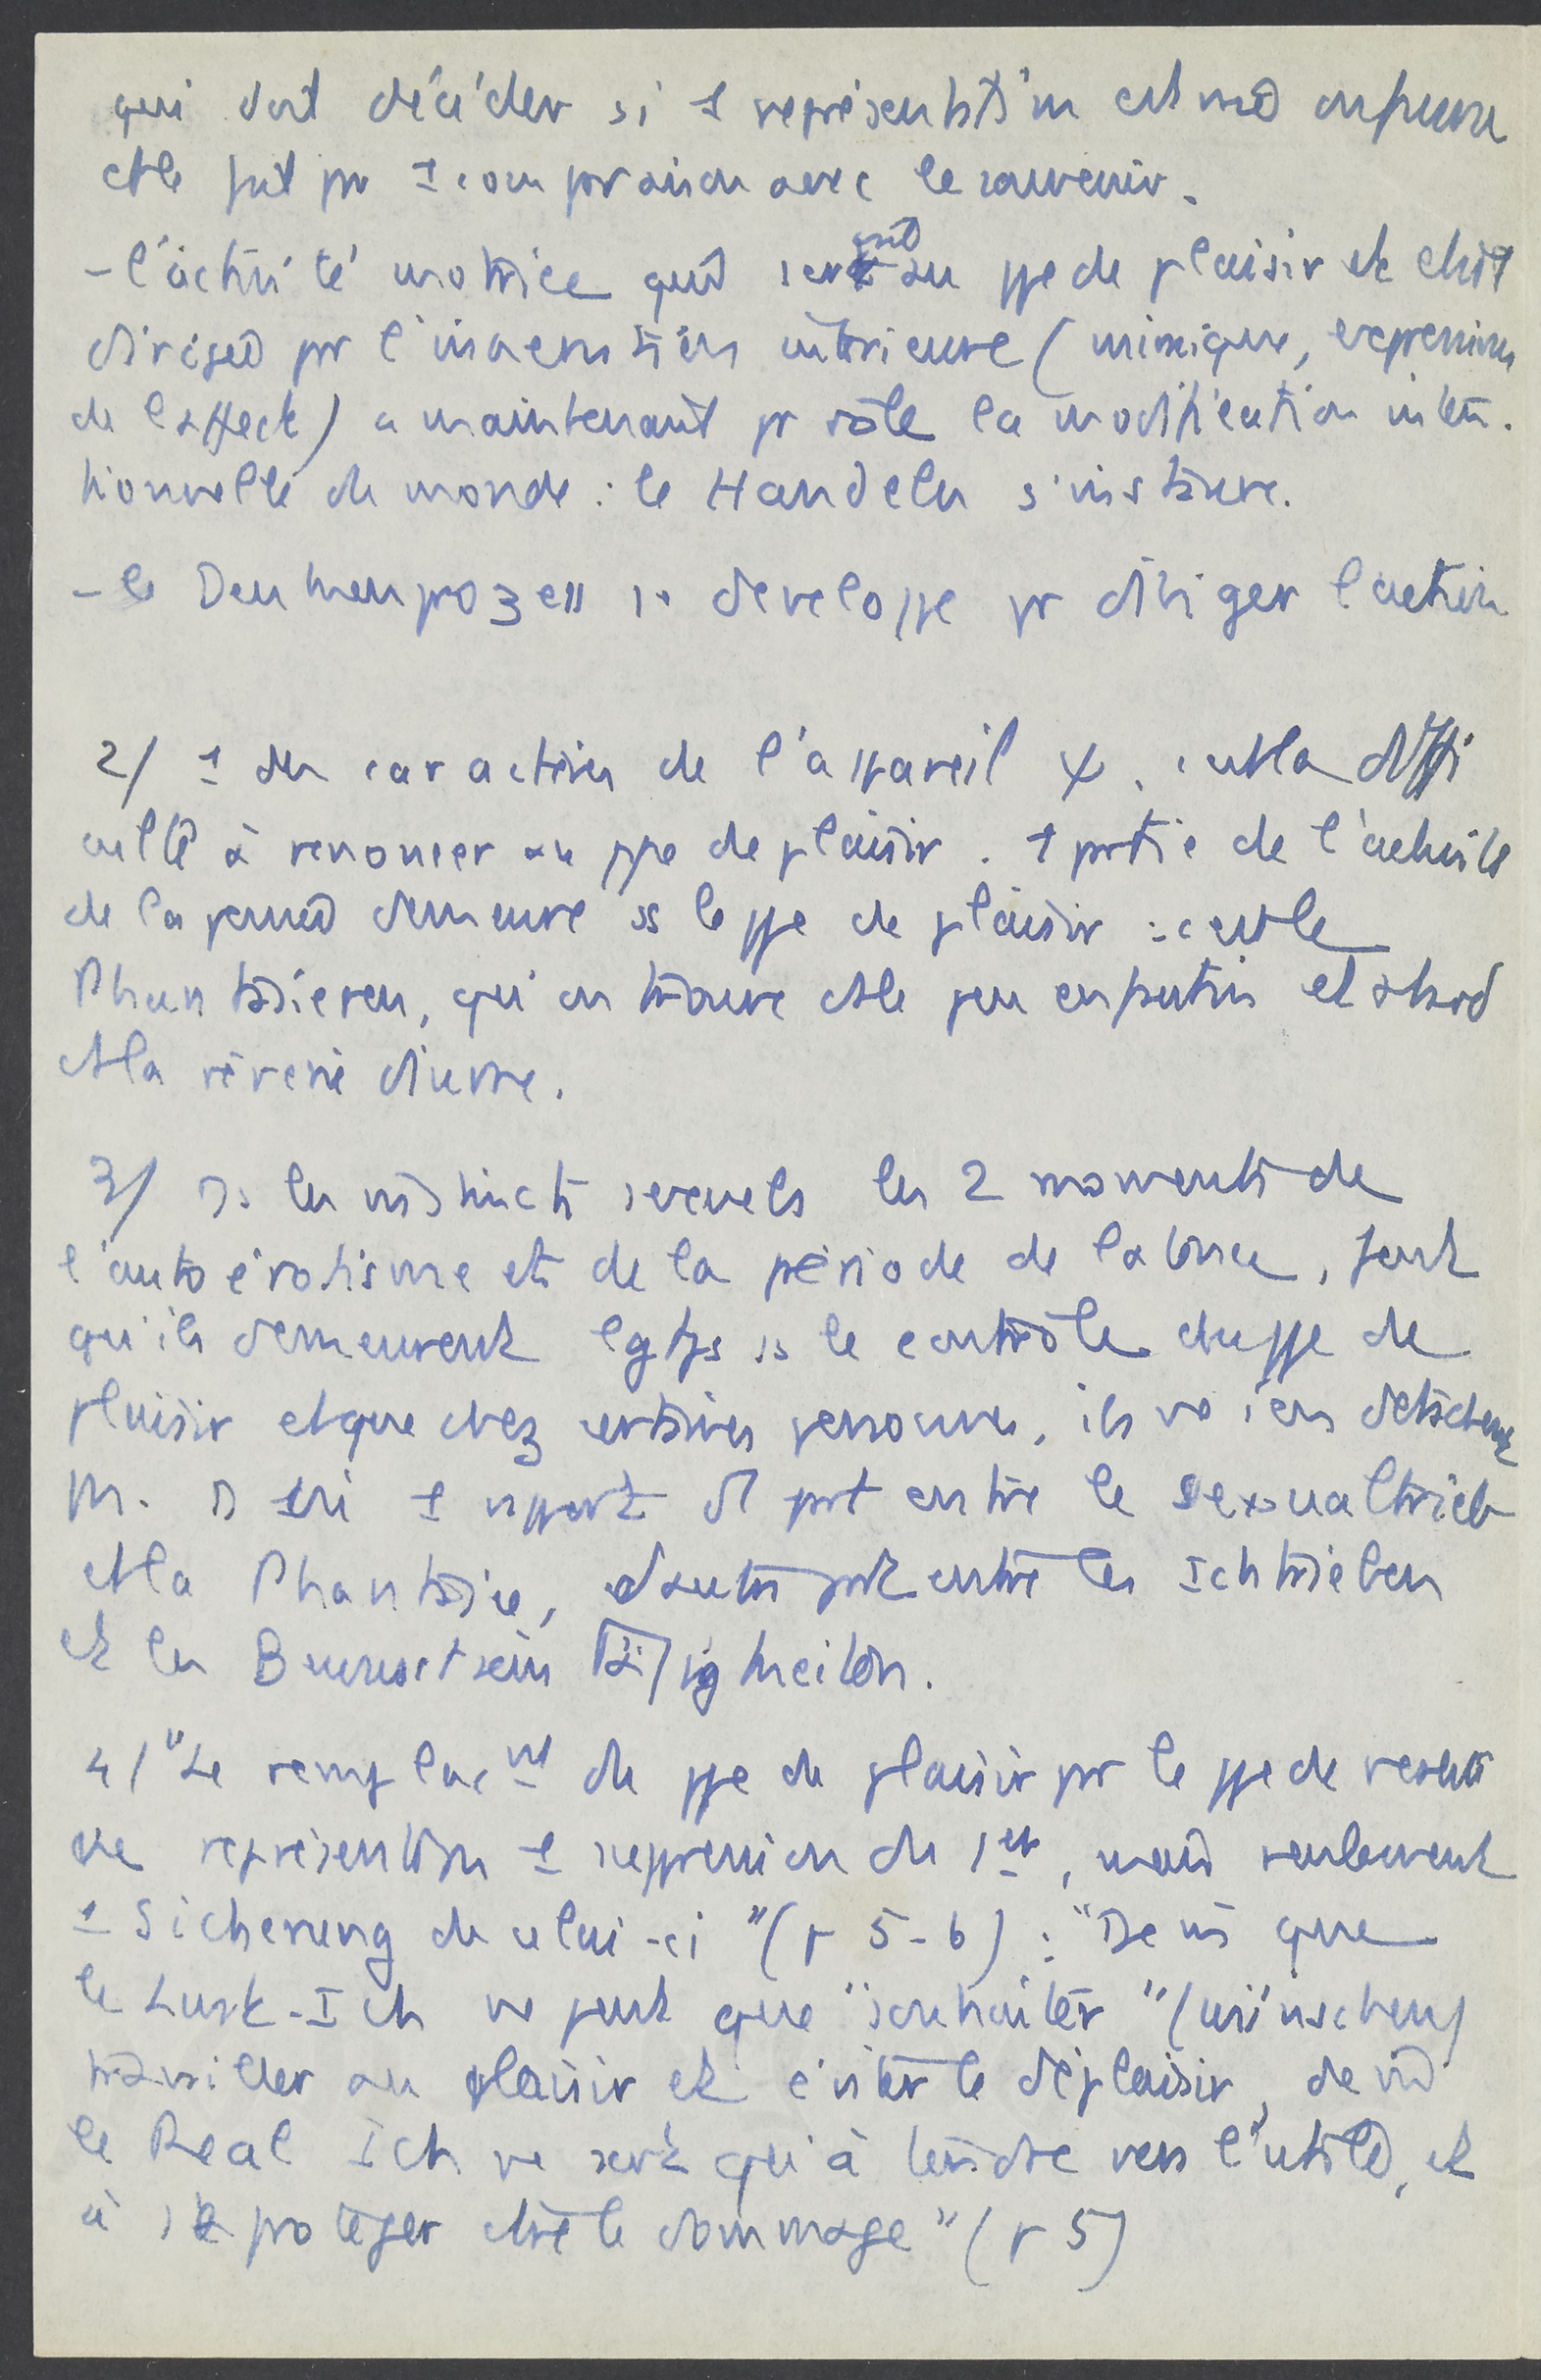 qui doit décider si 1 représentation est vraie ou fausse
et le fait par 1 comparaison avec le souvenir.
- l'activité motrice qui servait au ppe de plaisir et était
dirigée par l'innervation intérieure (mimique, expressions
de l'affect) a maintenant pr rôle la modification inten-
tionnelle du monde : le Handeln s'instaure.
- le Denkenprozess se développe pr diriger l'action
2/ 1 des caractères de l'appareil ψ, c'est la diffi
culté à renoncer au ppe de plaisir. 1 partie de l'activité
de la pensée demeure ss le ppe de plaisir : c'est le
Phantasieren, qu'on trouve ds le jeu enfantin et d'abord
ds la rêverie diurne.
3/ Ds les instincts sexuels les 2 moments de
l'autoérotisme et de la période de latence, font
qu'ils demeurent lgtps ss le contrôle du ppe de
plaisir et que chez certaines personnes, ils ne s'en détachent
pas. D'où 1 rapport d'1 part entre le Sexualtrieb
et la Phantasie, d'autre part entre les Ichtrieben
et les Bewusstseinstätigkeiten.
4/ "Le remplacnt du ppe de plaisir par le ppe de réalité
ne représente pas 1 suppression du 1er, mais seulement
1 Sicherung de celui-ci" (p 5-6) : "De m que
le Lust-Ich ne peut que "souhaiter" (wünschen)
travailler au plaisir et éviter le déplaisir, de m
le Real Ich ne sert qu'à tendre vers l'utile, et
à se protéger ctre le dommage" (p 5)